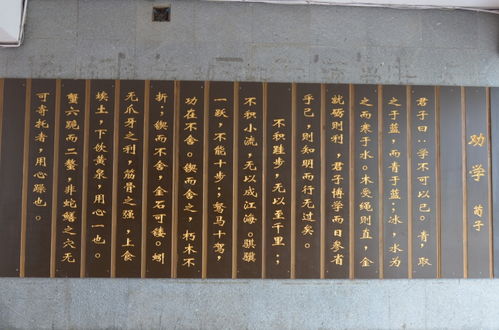 劝学
荀子
君子曰:学不可以已。青,取
之于蓝,而青于蓝;冰,水为
之而寒于水。木受绳则直,金
就砺则利,君子博学而日参省
乎己,则知明而行无过矣。
不积跬步,无以至千里;
不积小流,无以成江海。骐骥
一跃,不能十步;驽马十驾,
功在不舍。锲而舍之,朽木不
折;锲而不舍,金石可镂。蚓
无爪牙之利,筋骨之强,上食
埃土,下饮黄泉,用心一也。
蟹六跪而二螯,非蛇鳝之穴无
可寄托者,用心躁也。